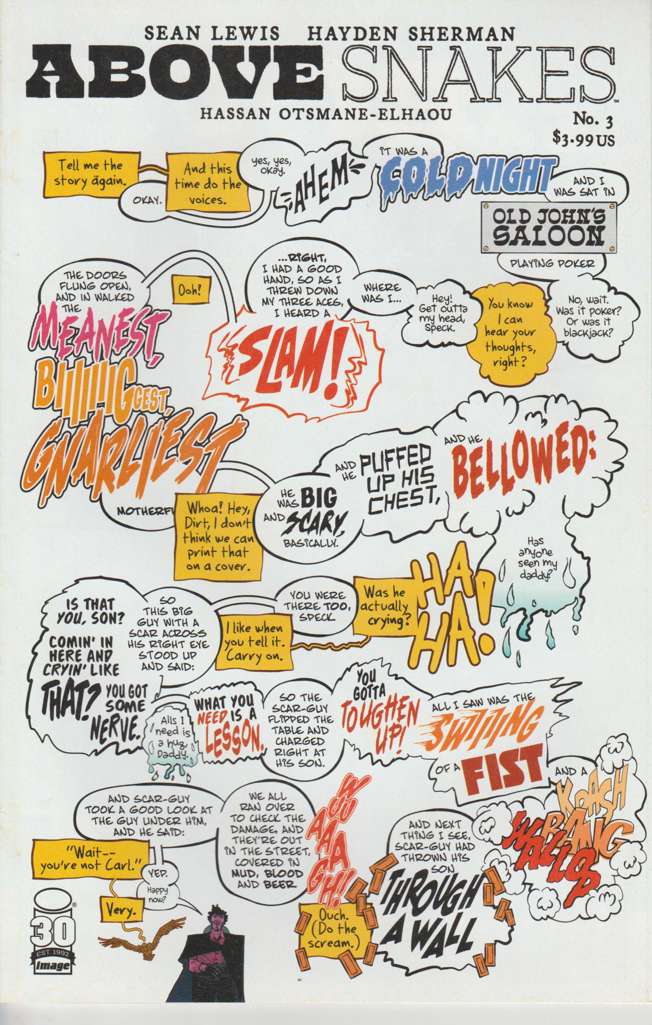 SEAN LEWIS HAYDEN SHERMAN
ABOVE SNAKES
HASSAN OTSMANE-ELHAOU
No. 3
$3.99 US
Tell me the
story again.
OKAY.
And this
time do the
voices.
yes, yes,
okay.
AHEM
IT WAS A
COLD NIGHT
AND I
WAS SAT IN
OLD JOHN'S
SALOON
PLAYING POKER
No, wait.
Was it poker?
Or was it
blackjack?
You know
I can
hear your
thoughts,
right?
Hey!
Get outta
my head,
Speck.
WHERE
WAS I...
...RIGHT,
I HAD A GOOD
HAND, SO AS I
THREW DOWN
MY THREE ACES,
I HEARD A
SLAM!
Ooh!
THE DOORS
FLUNG OPEN,
AND IN WALKED
THE
MEANEST,
BIIIIIIGGEST,
GNARLIEST
MOTHERFU
Whoa! Hey,
Dirt, I don't
think we can
print that
on a cover.
HE
WAS BIG
AND SCARY,
BASICALLY.
AND
HE PUFFED
UP HIS
CHEST,
AND HE
BELLOWED:
Has
anyone
seen my
daddy?
HA
HA!
Was he
actually
crying?
YOU WERE
THERE TOO,
SPECK.
I like when
you tell it.
Carry on.
SO
THIS BIG
GUY WITH A
SCAR ACROSS
HIS RIGHT EYE
STOOD UP
AND SAID:
IS THAT
YOU, SON?
COMIN' IN
HERE AND
CRYIN' LIKE
THAT? YOU GOT
SOME
NERVE.
Alls I
need is
a hug,
Daddy.
WHAT YOU
NEED IS A
LESSON.
SO THE
SCAR-GUY
FLIPPED THE
TABLE AND
CHARGED
RIGHT AT
HIS SON.
YOU
GOTTA
TOUGHEN
UP!
ALL I SAW WAS THE
SWIIIING
OF A FIST
AND A
KRASH
BAANG
WALLOP
AND NEXT
THING I SEE,
SCAR-GUY HAD
THROWN HIS
SON
THROUGH
A WALL
Ouch.
(Do the
scream.)
WE ALL
RAN OVER
TO CHECK THE
DAMAGE, AND
THEY'RE OUT
IN THE STREET,
COVERED IN
MUD, BLOOD
AND BEER.
AND SCAR-GUY
TOOK A GOOD LOOK AT
THE GUY UNDER HIM,
AND HE SAID:
"Wait--
you're not Carl."
YEP.
Happy
now?
Very.
30
EST 1992
image